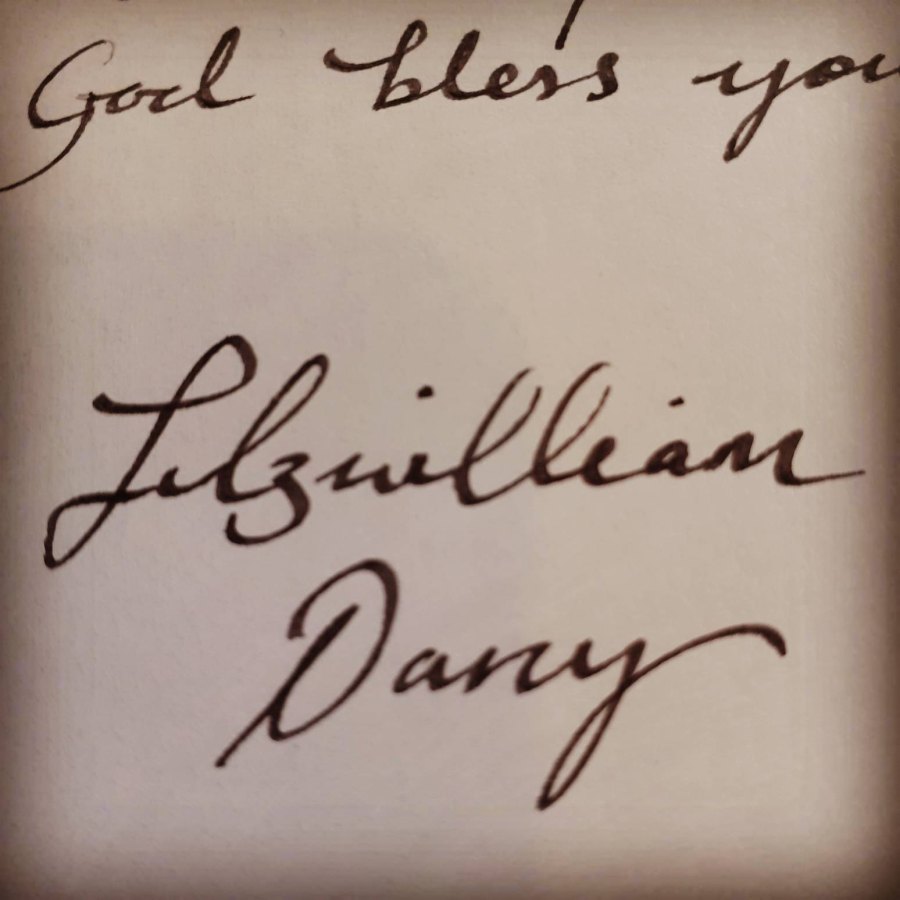 God bless you
Fitzwilliam
Darcy